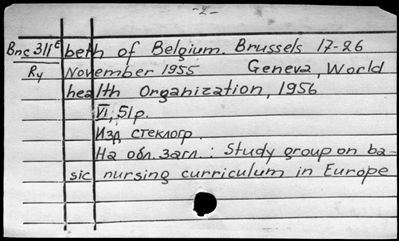 -2-
Bnc 311E beth of Belgium. Brussels 17-26
Ry November 1955 Geneva, World
health Organization, 1956
VI, 51p.
Изд. стеклогр.
На обл. загл.: Study group on ba-
sic nursing curriculum in Europe